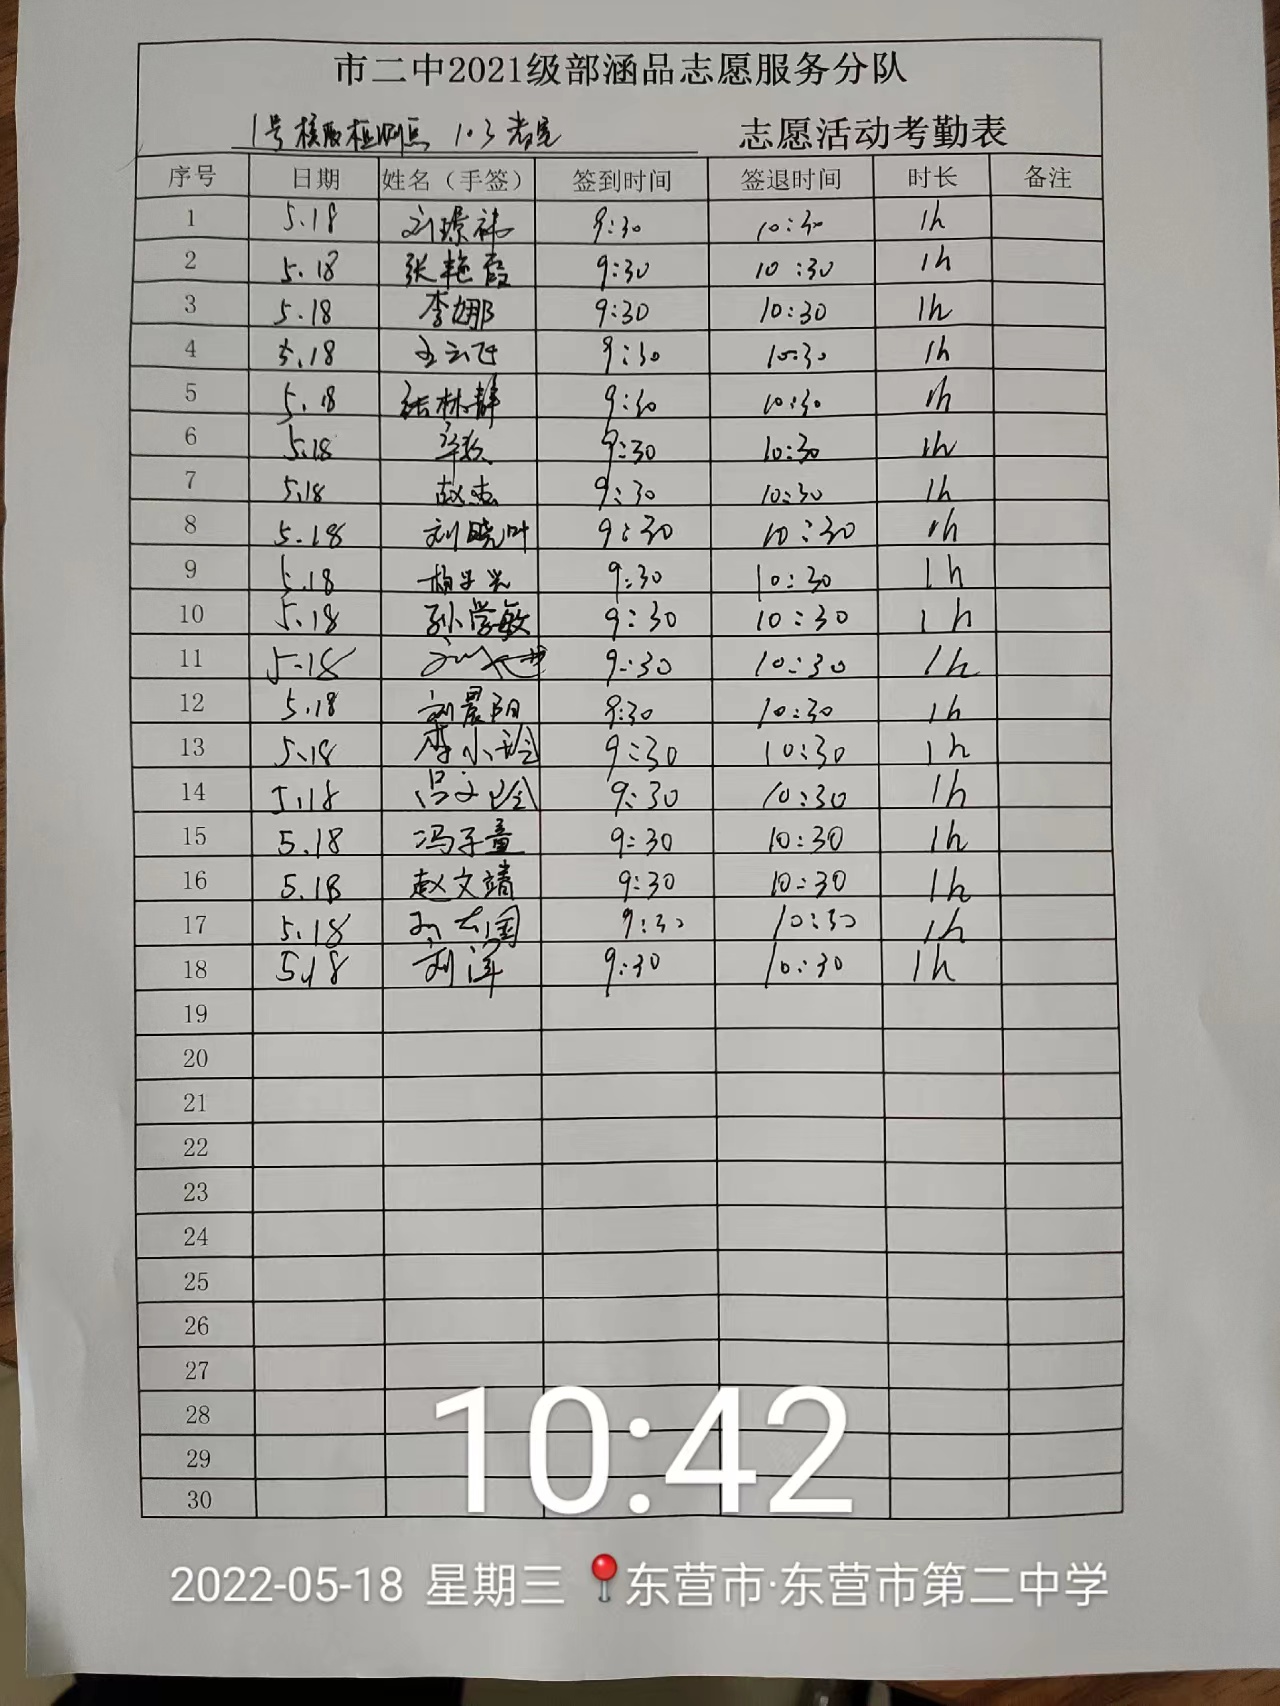 市二中2021级部涵品志愿服务分队
1号核酸检测点 103考室 志愿活动考勤表
序号 日期 姓名（手签） 签到时间 签退时间 时长 备注
1 5.18 刘璟祎 9:30 10:30 1h
2 5.18 张艳霞 9:30 10:30 1h
3 5.18 李娜 9:30 10:30 1h
4 5.18 王云飞 9:30 10:30 1h
5 5.18 张林静 9:30 10:30 1h
6 5.18 9:30 10:30 1h
7 5.18 赵杰 9:30 10:30 1h
8 5.18 刘晓叶 9:30 10:30 1h
9 5.18 9:30 10:30 1h
10 5.18 孙学敏 9:30 10:30 1h
11 5.18 9:30 10:30 1h
12 5.18 刘晨阳 9:30 10:30 1h
13 5.18 李小玲 9:30 10:30 1h
14 5.18 吕文 9:30 10:30 1h
15 5.18 冯子童 9:30 10:30 1h
16 5.18 赵文靖 9:30 10:30 1h
17 5.18 9:30 10:30 1h
18 5.18 刘洋 9:30 10:30 1h
19
20
21
22
23
24
25
26
27
28
29
30
10:42
2022-05-18 星期三 东营市·东营市第二中学